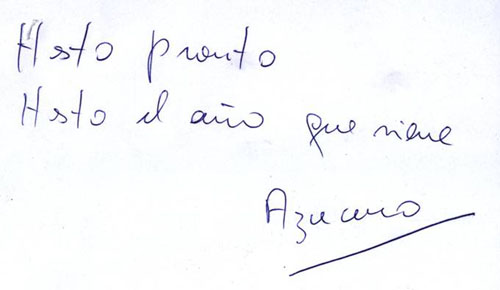 Hasta pronto
Hasta el año que viene
Azucena